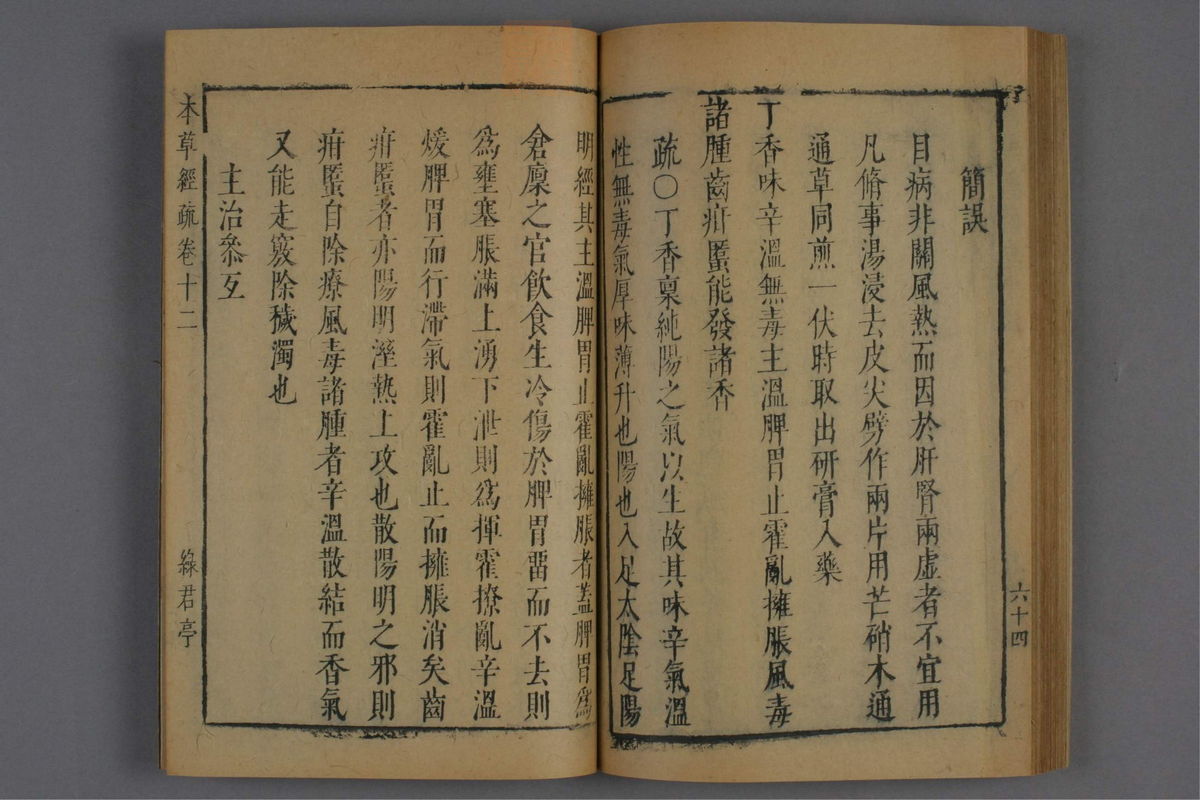 六十四
簡誤
目病非關風熱而因於肝腎兩虛者不宜用
凡脩事湯浸去皮尖劈作兩片用芒硝木通
通草同煎一伏時取出研膏入藥
丁香味辛溫無毒主溫脾胃止霍亂擁脹風毒
諸腫齒疳䘌能發諸香
疏○丁香稟純陽之氣以生故其味辛氣溫
性無毒氣厚味薄升也陽也入足太陰足陽
明經其主溫脾胃止霍亂擁脹者蓋脾胃爲
倉廩之官飲食生冷傷於脾胃畱而不去則
爲壅塞脹滿上湧下泄則爲揮霍撩亂辛溫
煖脾胃而行滯氣則霍亂止而擁脹消矣齒
疳䘌者亦陽明溼熱上攻也散陽明之邪則
疳䘌自除療風毒諸腫者辛溫散結而香氣
又能走竅除穢濁也
主治叅互
本草經疏卷十二
綠君亭